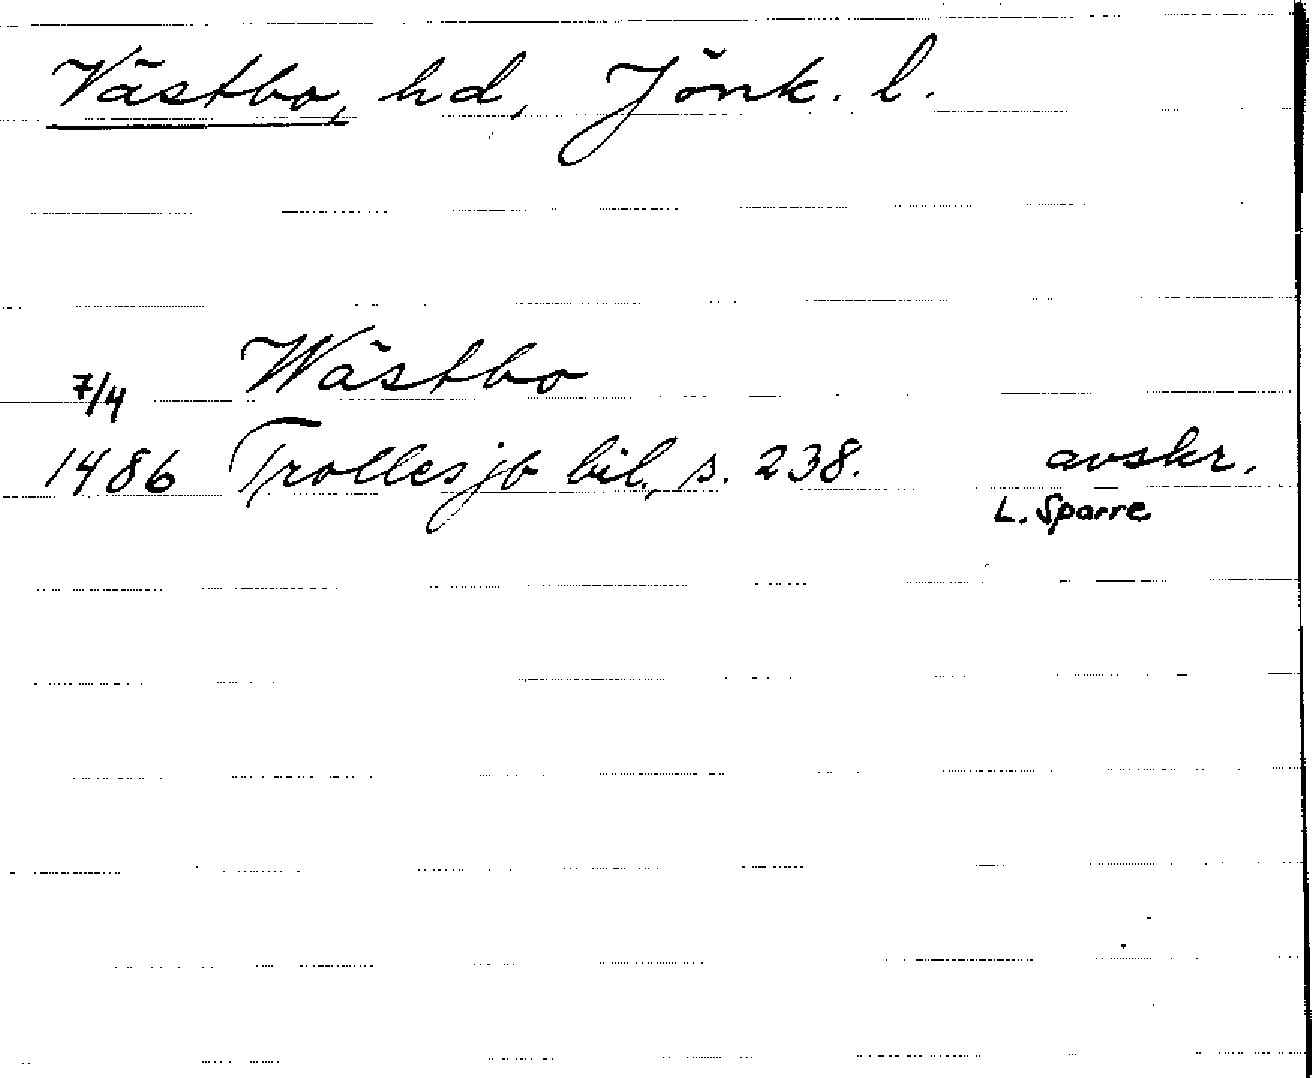 Västbo, hd, Jönk. l.
Wästbo
7/4
1486 Trollesjb bil., s. 238. avskr.
L. Sparre